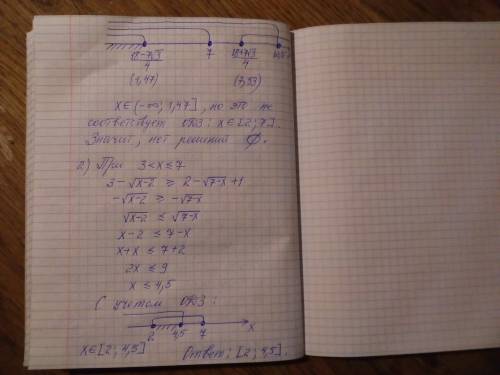 18-7√3/4 7 18+7√3/4 10,5
(1,47) (7,53)
x∈(-∞; 1,47], но это не
соответствует ОДЗ: x∈[2; 7].
Значит, нет решений ∅.
2) При 3<x≤7
3-√x-2 ≥ 2-√7-x+1
-√x-2 ≥ -√7-x
√x-2 ≤ √7-x
x-2 ≤ 7-x
x+x ≤ 7+2
2x ≤ 9
x ≤ 4,5
С учетом ОДЗ:
2 4,5 7 x
x∈[2; 4,5] Ответ: [2; 4,5].